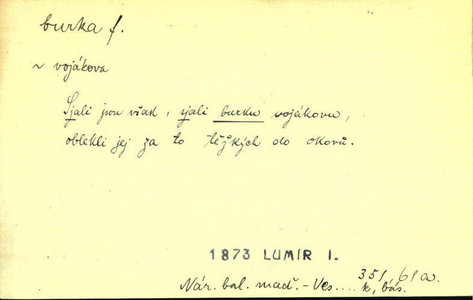 burka f.
~ vojákova
Sjali jsou však, sjali burku vojákovu,
oblekli jej za to těžkých do okovů.
1873 LUMÍR I.
351, 61a
Nár. bal. maď. - Ves.... k, bás.